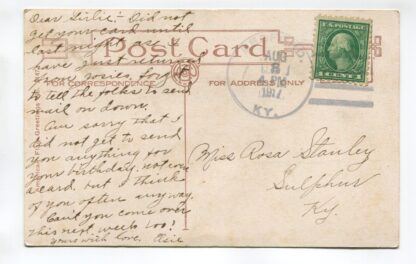 Dear Girlie:- Did not
get your card until
last night. as we
have just returned
Post Card
FOR CORRESPONDENCE
FOR ADDRESS ONLY
to tell the folks to send
mail on down.
Am sorry that I
did not get to send
you anything for
your birthday, not even
a card, but I think
of you often any way.
Can't you come over
this next week too?
Yours with love,
AUG
8
1917
KY.
U.S. POSTAGE
1 CENT 1
Miss Rosa Stanley
Sulphur
Ky.